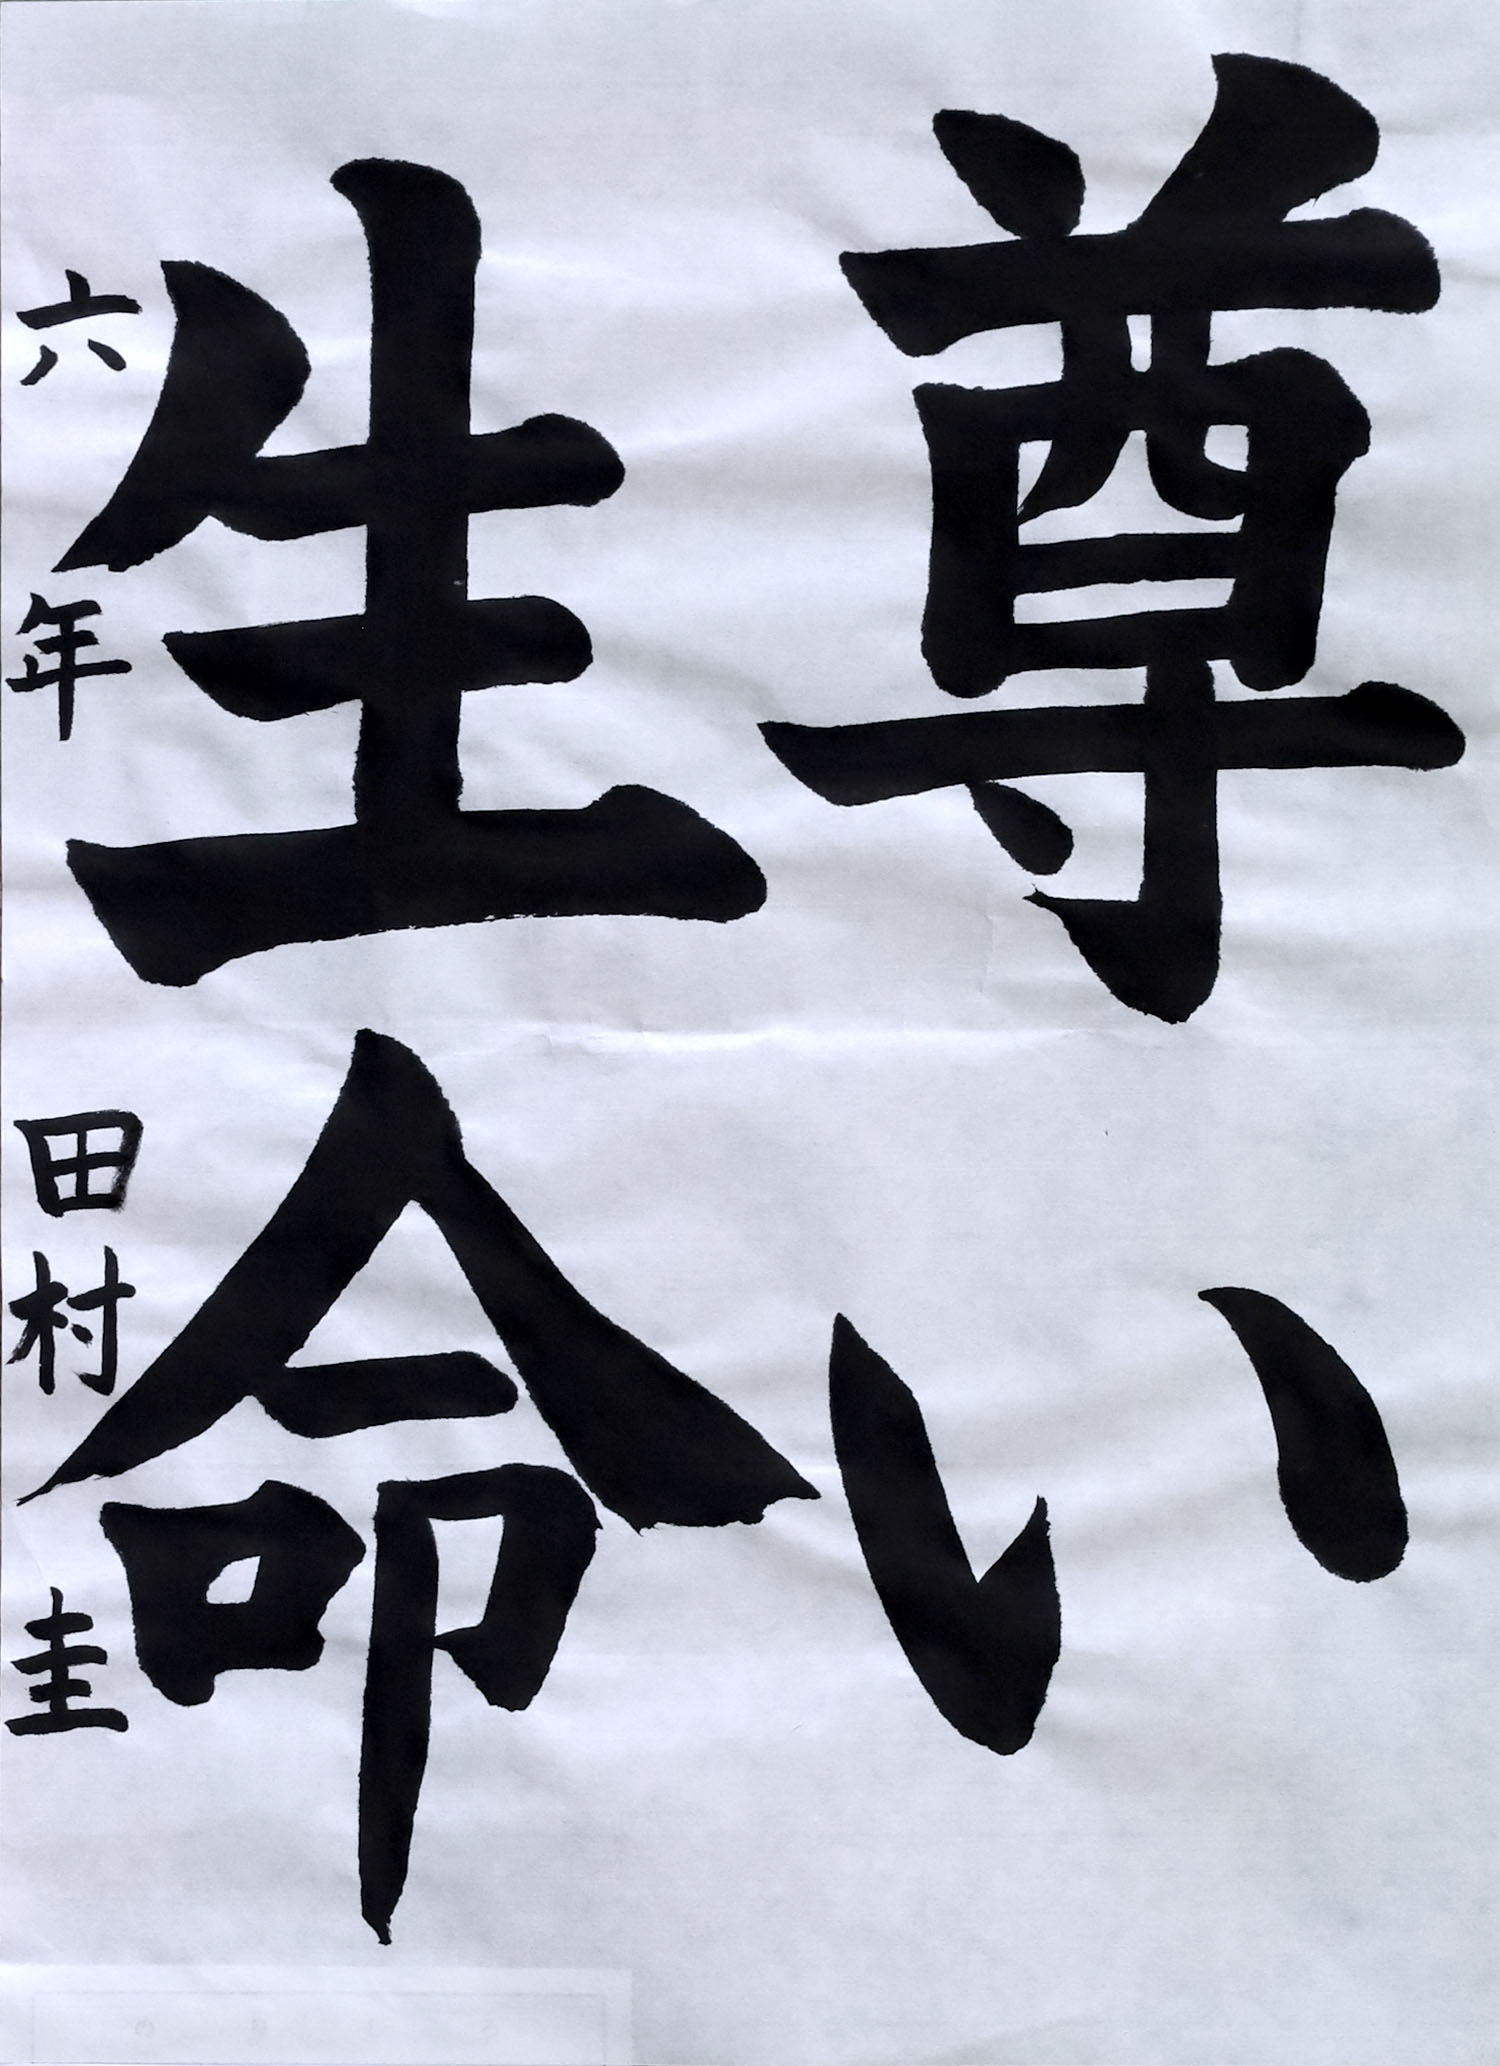 尊い
生命
六年 田村圭